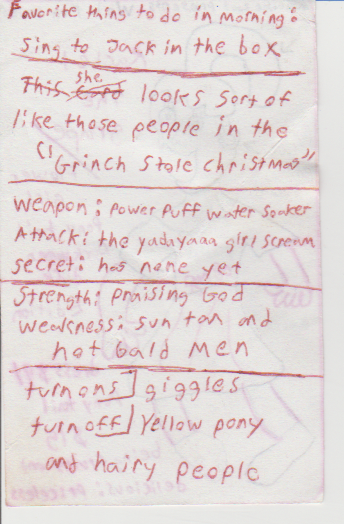 Favorite thing to do in morning:
Sing to Jack in the box
This Card she looks sort of
like those people in the
"Grinch Stole Christmas"
Weapon: Power Puff Water Soaker
Attack: the yadayaaa girl scream
Secret: has none yet
Strength: praising God
Weakness: sun tan and
hot bald men
turn ons] giggles
turn off] Yellow pony
and hairy people